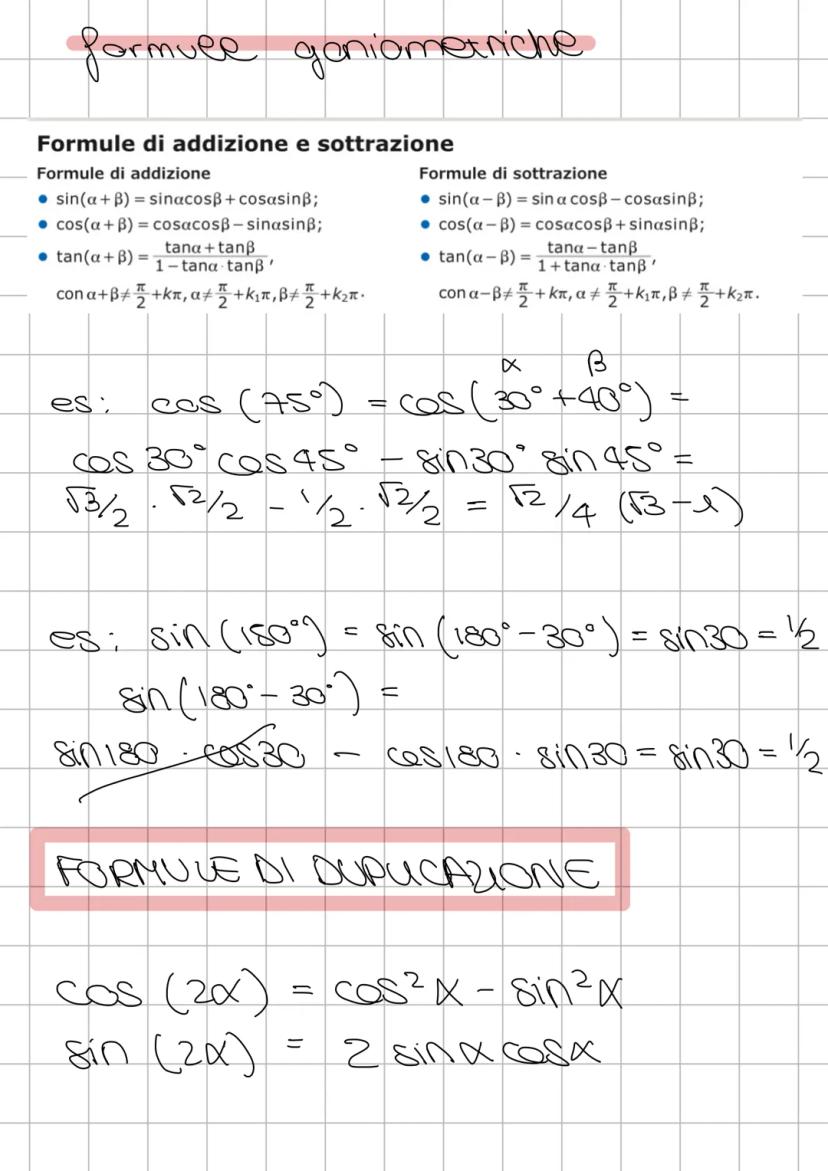 formule goniometriche
Formule di addizione e sottrazione
Formule di addizione
• sin(α+β) = sinαcosβ + cosαsinβ;
• cos(α+β) = cosαcosβ − sinαsinβ;
• tan(α+β) = (tanα + tanβ)/(1 − tanα·tanβ),
con α+β ≠ π/2 + kπ, α ≠ π/2 + k₁π, β ≠ π/2 + k₂π.
Formule di sottrazione
• sin(α−β) = sin α cosβ − cosαsinβ;
• cos(α−β) = cosαcosβ + sinαsinβ;
• tan(α−β) = (tanα − tanβ)/(1 + tanα·tanβ),
con α−β ≠ π/2 + kπ, α ≠ π/2 + k₁π, β ≠ π/2 + k₂π.
α β
es: cos (75°) = cos (30° + 40°) =
cos 30° cos 45° − sin 30° sin 45° =
√3/2 · √2/2 − 1/2 · √2/2 = √2/4 (√3 − 1)
es: sin (150°) = sin (180° − 30°) = sin30 = 1/2
sin (180° − 30°) =
sin180 · cos30 − cos180 · sin30 = sin30 = 1/2
FORMULE DI DUPLICAZIONE
cos (2α) = cos²α − sin²α
sin (2α) = 2 sinα cosα